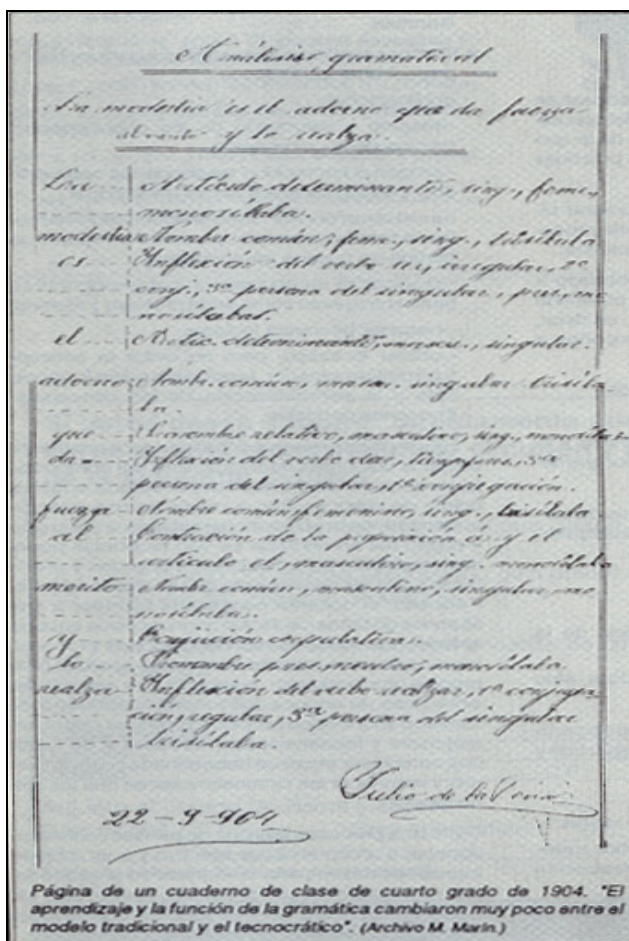 Análisis gramatical
La modestia es el adorno que da fuerza
al merito y lo realza.
La Artículo determinante, sing., feme.,
monosílaba.
modestia Nombre común, feme., sing., trisílaba
es Inflexión del verbo ser, irregular, 2ª
conj., 3ª persona del singular, pres., mo
nosílabas.
el Artic. determinante, mascu., singular.
adorno Nombre común, mascu. singular trisíla
ba.
que Pronombre relativo, masculino, sing., monosílaba
da Inflexión del verbo dar, 3ª
persona del singular, 1ª conjugación.
fuerza Nombre común femenino, sing.,
al Contracción de la preposición á y el
artículo el, masculino, sing. monosílaba
merito Nombre común, masculino, singular, mo
nosílaba.
y Conjunción copulativa.
lo Pronombre monosílaba.
realza Inflexión del verbo realzar, 1ª conjuga
ción, regular, 3ª persona del singular
trisílaba.
Julio de la
22-9-904
Página de un cuaderno de clase de cuarto grado de 1904. "El
aprendizaje y la función de la gramática cambiaron muy poco entre el
modelo tradicional y el tecnocrático". (Archivo M. Marín.)